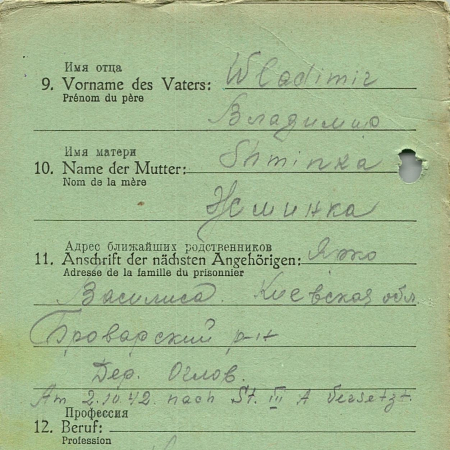 Имя отца
9. Vorname des Vaters: Wladimir
Prénom du père
Владимир
Имя матери
10. Name der Mutter: Shminka
Nom de la mère
Жминка
Адрес ближайших родственников
11. Anschrift der nächsten Angehörigen: Яжо
Adresse de la famille du prisonnier
Василиса. Киевская обл.
Броварский р-н
Дер.
Am 2.10.42. nach St. III A versetzt.
Профессия
12. Beruf:
Profession